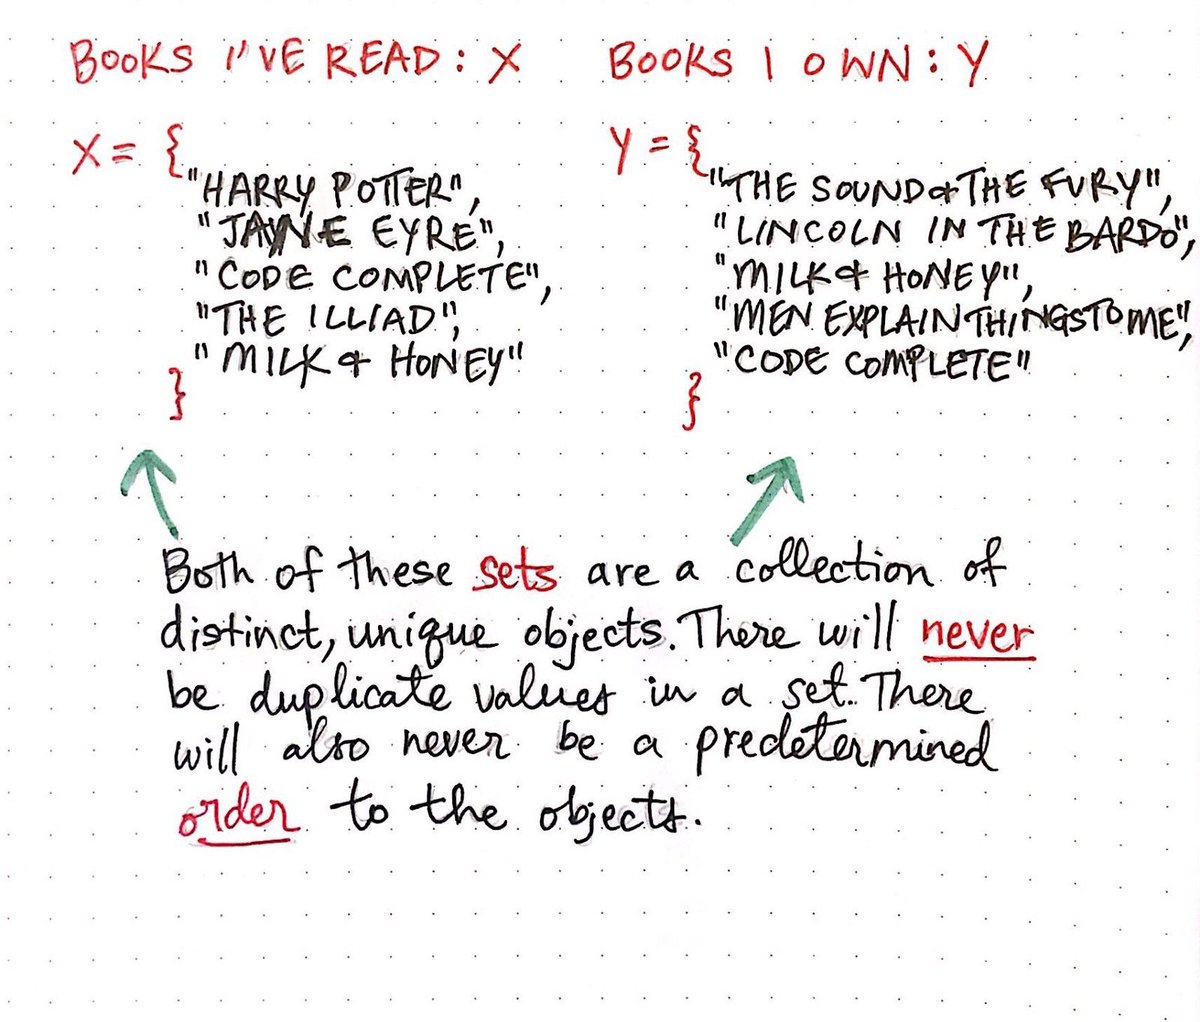 BOOKS I'VE READ: X
BOOKS I OWN: Y
X = {
"HARRY POTTER",
"JAYNE EYRE",
"CODE COMPLETE",
"THE ILLIAD",
"MILK & HONEY"
}
Y = {
"THE SOUND & THE FURY",
"LINCOLN IN THE BARDO",
"MILK & HONEY",
"MEN EXPLAIN THINGS TO ME",
"CODE COMPLETE"
}
Both of these sets are a collection of
distinct, unique objects. There will never
be duplicate values in a set. There
will also never be a predetermined
order to the objects.